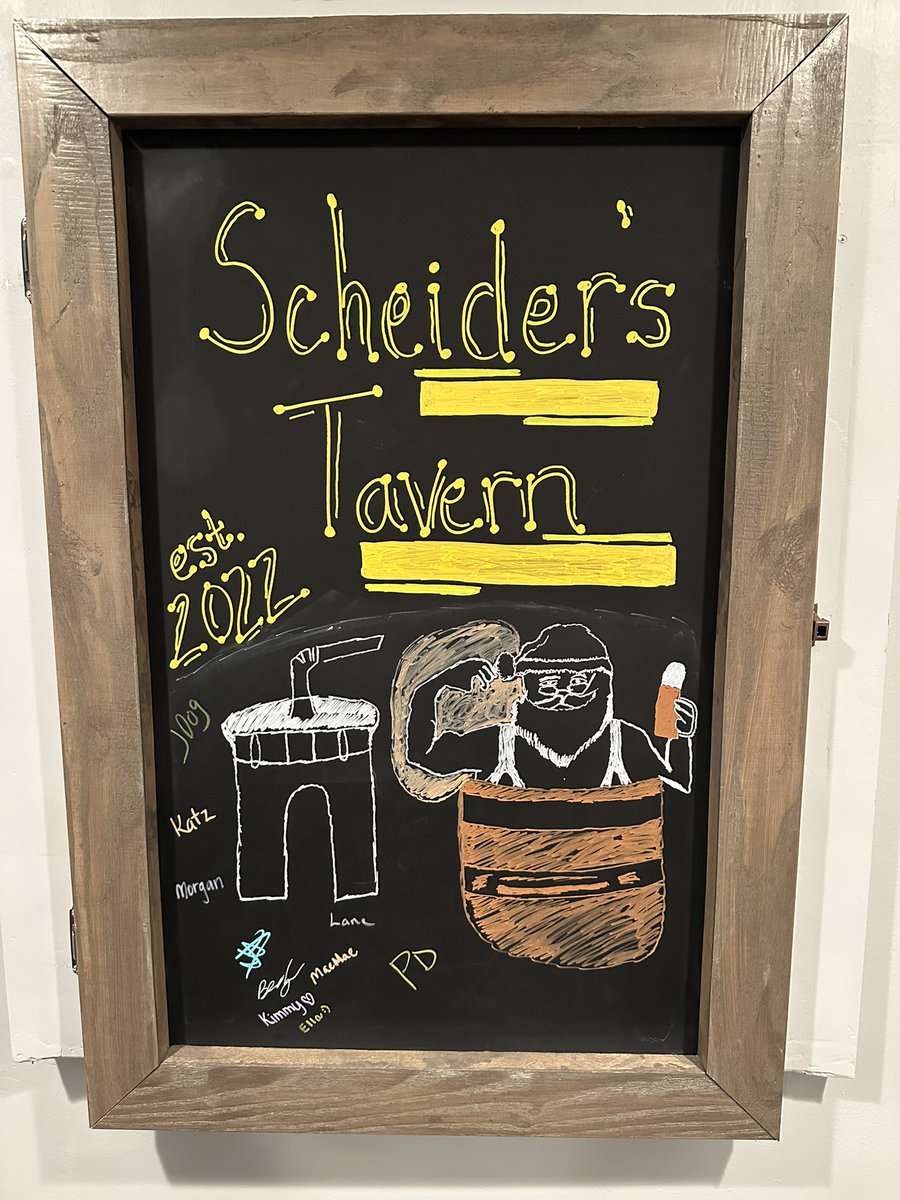 Scheider's
Tavern
est.
2022
JDog
Katz
Morgan
Lane
MaeMae
PD
Kimmy♡
Ella:)